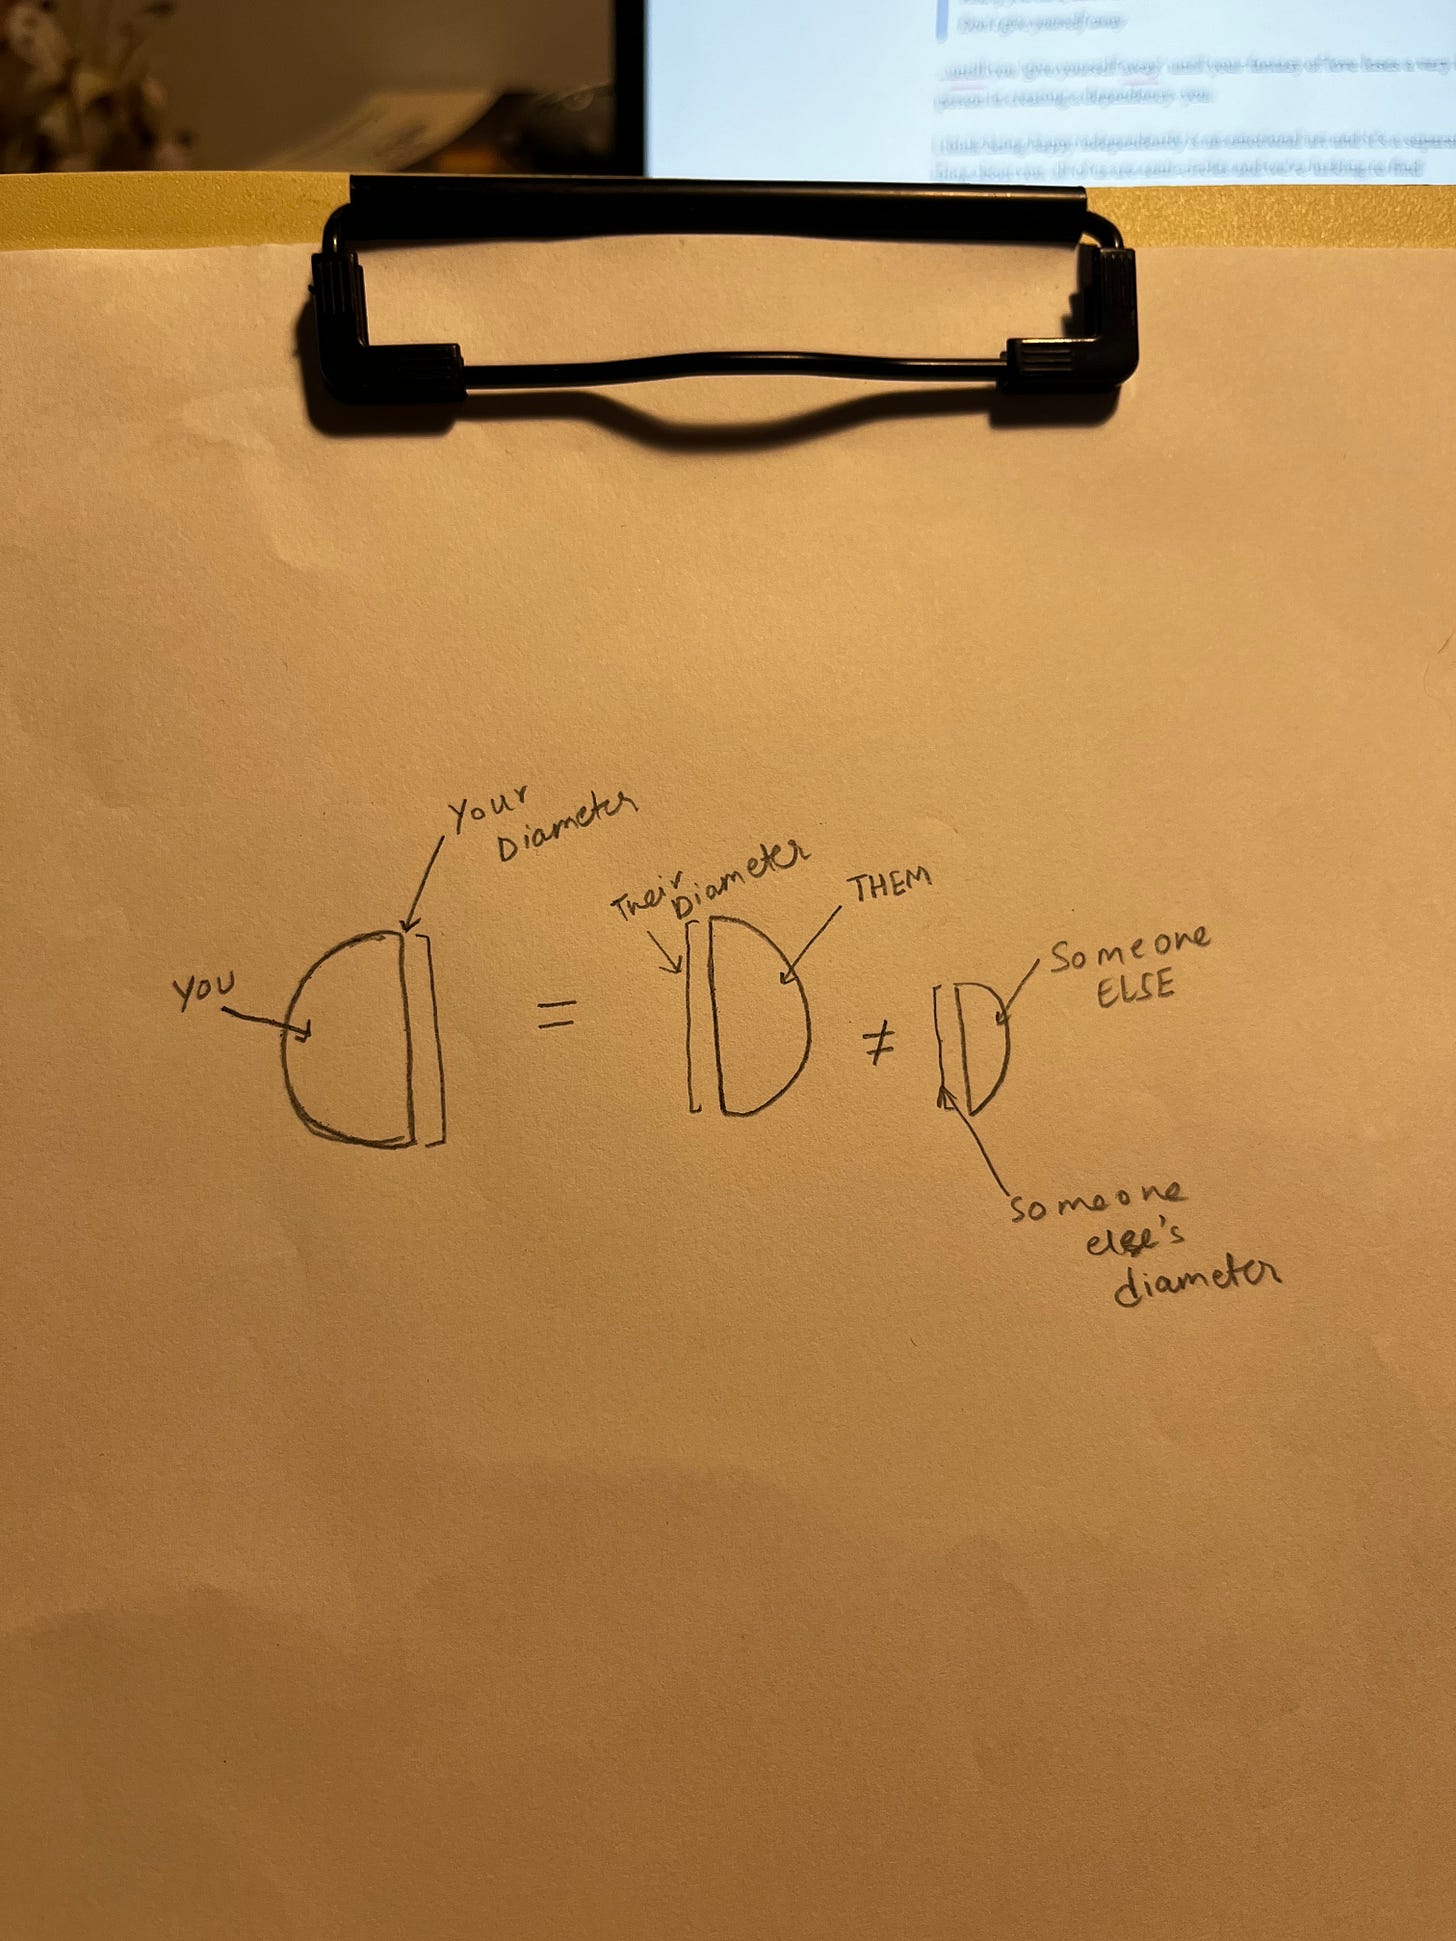 Your
Diameter
Their
Diameter
THEM
YOU
=
≠
Someone
ELSE
Someone
else's
diameter